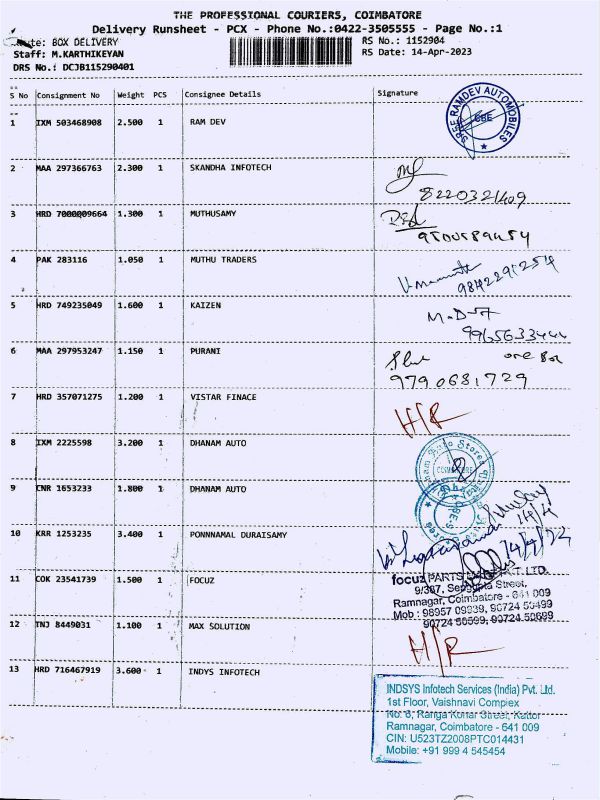 THE PROFESSIONAL COURIERS, COIMBATORE
Delivery Runsheet - PCX - Phone No.:0422-3505555 - Page No.:1
BOX DELIVERY
RS No.: 1152904
Staff: M.KARTHIKEYAN
RS Date: 14-Apr-2023
DRS No.: DCJB115290401
S No Consignment No Weight PCS Consignee Details Signature
1 IXM 503468908 2.500 1 RAM DEV
SREE RAMDEV AUTOMOBILES
CBE
2 MAA 297366763 2.300 1 SKANDHA INFOTECH
8220321409
3 HRD 7000009664 1.300 1 MUTHUSAMY
4 PAK 283116 1.050 1 MUTHU TRADERS
5 HRD 749235049 1.600 1 KAIZEN
6 MAA 297953247 1.150 1 PURANI
9790681729
7 HRD 357071275 1.200 1 VISTAR FINACE
H/R
8 IXM 2225598 3.200 1 DHANAM AUTO
9 CNR 1653233 1.800 1 DHANAM AUTO
14/4
10 KRR 1253235 3.400 1 PONNNAMAL DURAISAMY
11 COK 23541739 1.500 1 FOCUZ
focuz PARTS LTD.
Street,
Ramnagar, Coimbatore - 641 009
12 TNJ 8449031 1.100 1 MAX SOLUTION
H/R
13 HRD 716467919 3.600 1 INDYS INFOTECH
INDSYS Infotech Services (India) Pvt. Ltd.
1st Floor, Vaishnavi Complex
No: 6, Ranga Konar Street, Kattor
Ramnagar, Coimbatore - 641 009
CIN: U523TZ2008PTC014431
Mobile: +91 999 4 545454